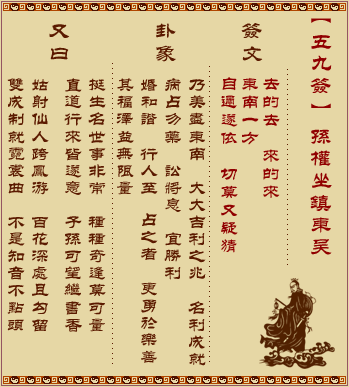 【五九簽】 孫權坐鎮東吳
簽文
去的去 來的來
東南一方
自適遂依 切莫又疑猜
卦象
乃美盡東南 大大吉利之兆 名利成就
病占勿藥 訟將息 宜勝利
婚和諧 行人至 占之者 更勇於樂善
其福澤益無限量
又曰
挺生名世事非常 種種奇逢莫可量
直道行來皆遂意 子孫可望繼書香
姑射仙人跨鳳游 百花深處且勾留
雙成制就霓裳曲 不是知音不點頭